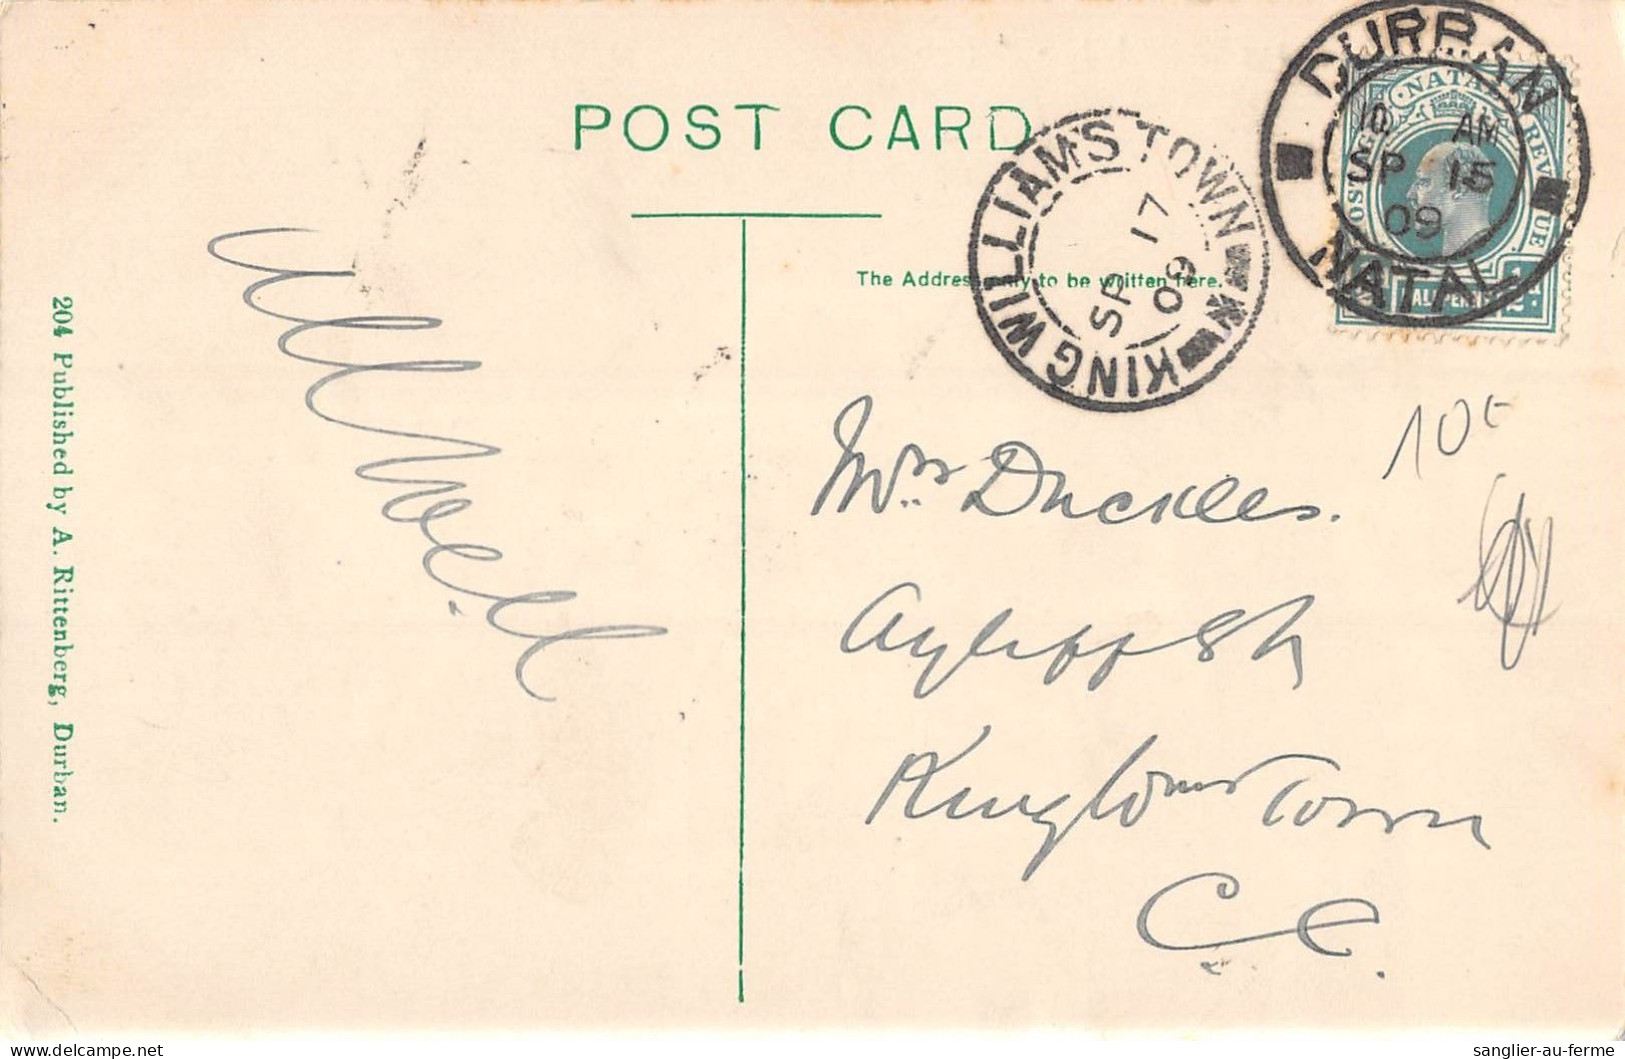 POST CARD
The Address only to be written here.
204 Published by A. Rittenberg, Durban.
All well
Mrs Duckles.
Ayliff St
King Wms Town
C C.
10€
KING WILLIAM'S TOWN
SP 17
09
DURBAN
10 AM
SP 15
09
NATAL
NATAL
POSTAGE REVENUE
HALF PENNY
1/2d.
sanglier-au-ferme